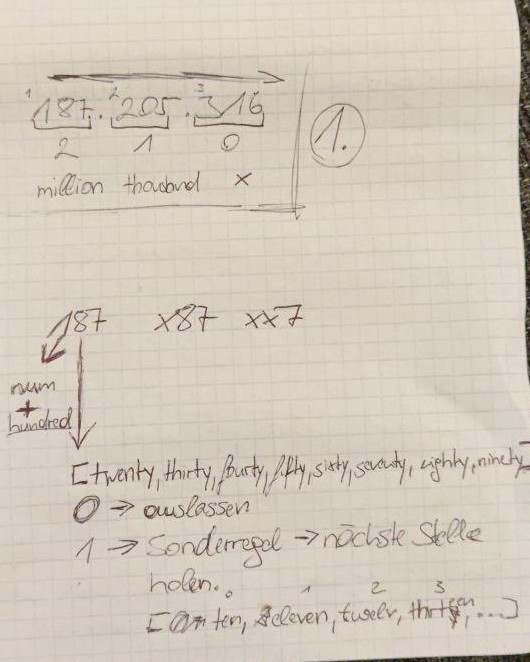 1 2 3
187.205.316
2 1 0
million thousand x
1.
187 x87 xx7
num
+
hundred
[twenty, thirty, fourty, fifty, sixty, seventy, eighty, ninety]
0 → auslassen
1 → Sonderregel → nächste Stelle
holen.
1 2 3
[ten, eleven, twelv, thirteen, ...]